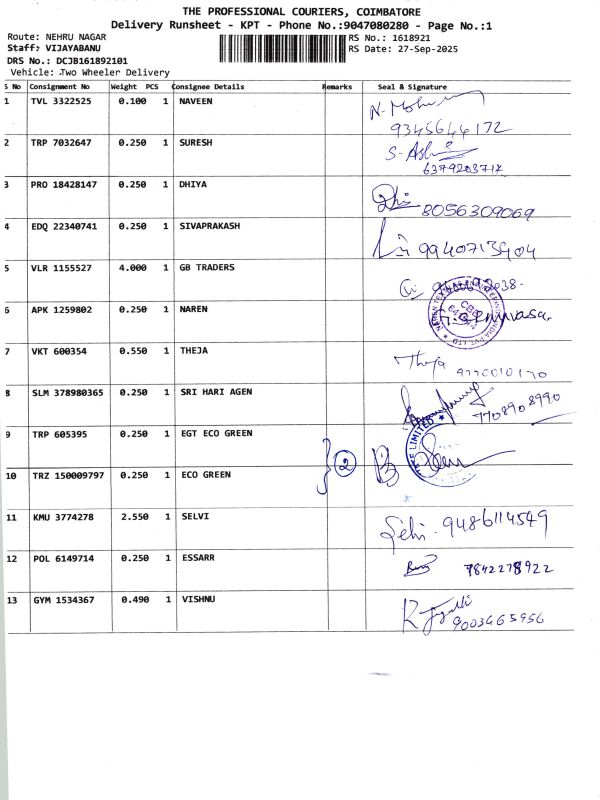 THE PROFESSIONAL COURIERS, COIMBATORE
Delivery Runsheet - KPT - Phone No.:9047080280 - Page No.:1
Route: NEHRU NAGAR RS No.: 1618921
Staff: VIJAYABANU RS Date: 27-Sep-2025
DRS No.: DCJB161892101
Vehicle: Two Wheeler Delivery
S No Consignment No Weight PCS Consignee Details Remarks Seal & Signature
1 TVL 3322525 0.100 1 NAVEEN
9345644172
2 TRP 7032647 0.250 1 SURESH
3 PRO 18428147 0.250 1 DHIYA
8056309069
4 EDQ 22340741 0.250 1 SIVAPRAKASH
5 VLR 1155527 4.000 1 GB TRADERS
6 APK 1259802 0.250 1 NAREN
7 VKT 600354 0.550 1 THEJA
Theja
8 SLM 378980365 0.250 1 SRI HARI AGEN
7708908990
9 TRP 605395 0.250 1 EGT ECO GREEN
2
LIMITED
10 TRZ 150009797 0.250 1 ECO GREEN
11 KMU 3774278 2.550 1 SELVI
9486114549
12 POL 6149714 0.250 1 ESSARR
7842278922
13 GYM 1534367 0.490 1 VISHNU
9003665956